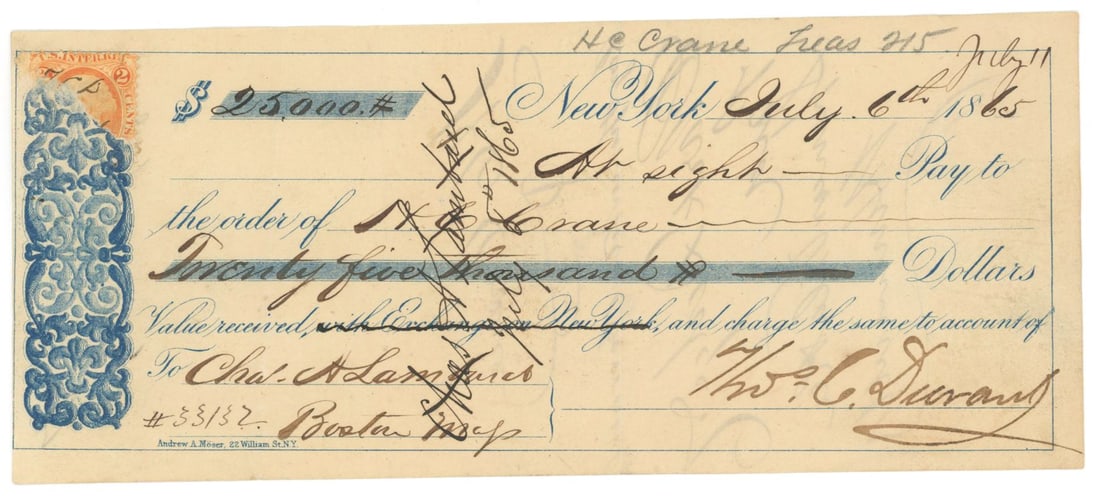 HC Crane Treas 215
July 11
U.S. INTER. REV.
2
CENTS
$ 25,000.#
New York July 6th 1865
At sight Pay to
the order of H C Crane
Twenty five thousand # Dollars
Value received, with Exchange on New York, and charge the same to account of
To Chas. A Lambard
Thos. C. Durant
#33132
Boston
Andrew A. Möser, 22 William St. N.Y.
Chas A Lambard
July 8" 1865